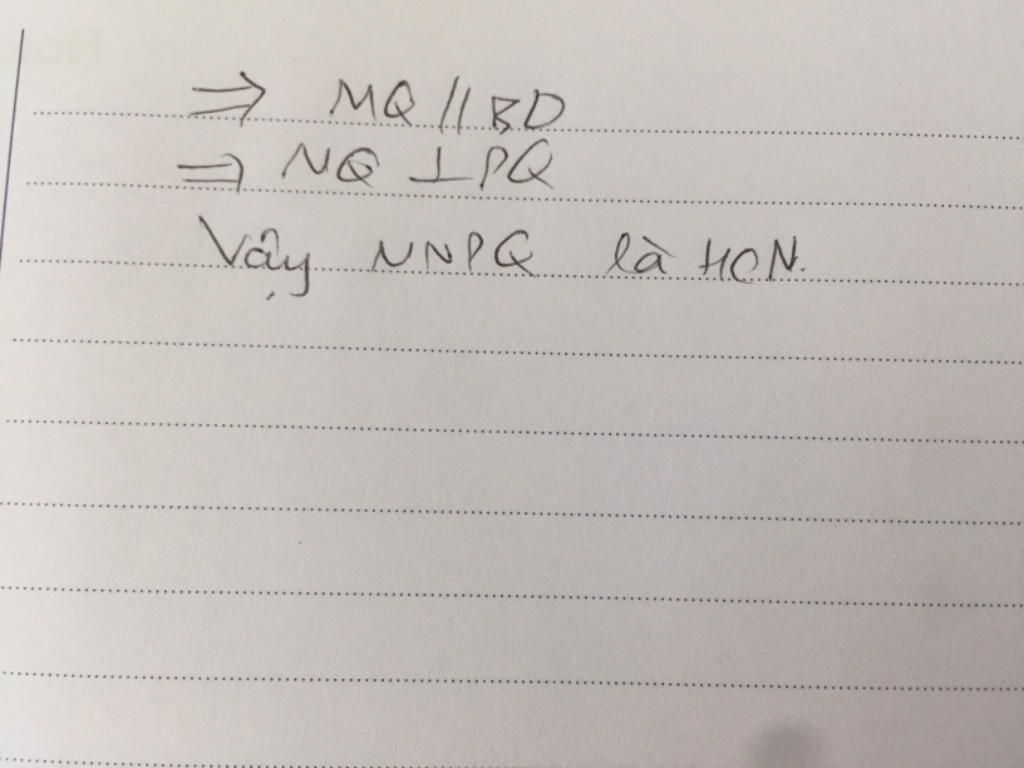 ⇒ MQ // BD
⇒ MQ ⊥ PQ
Vậy MNPQ là HCN.